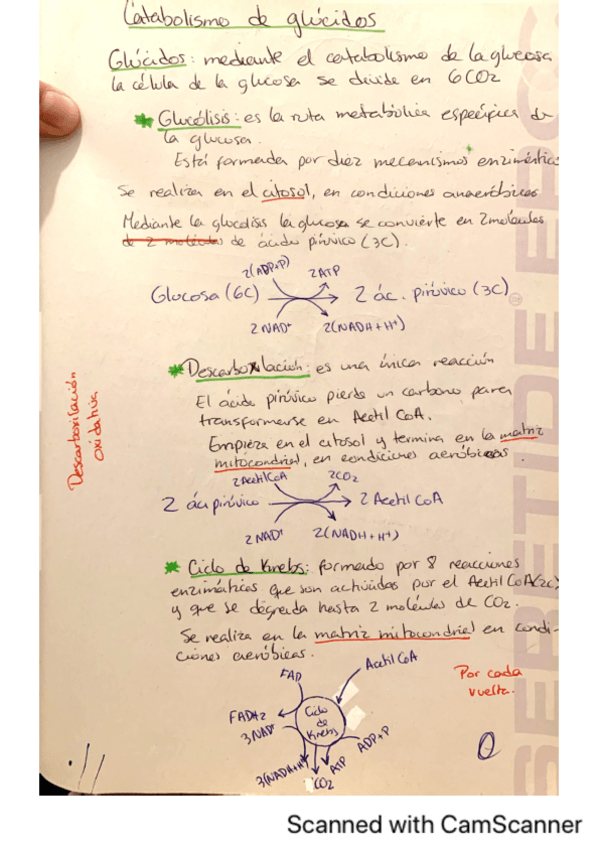 Catabolismo de glúcidos
Glúcidos: mediante el catabolismo de la glucosa
la célula de la glucosa se divide en 6CO2
* Glucólisis: es la ruta metabólica específica de
la glucosa.
Está formada por diez mecanismos enzimáticos
Se realiza en el citosol, en condiciones anaeróbicas.
Mediante la glucólisis la glucosa se convierte en 2 moléculas
de 2 moléculas de ácido pirúvico (3C).
2(ADP+P) 2ATP
Glucosa (6C) → 2 ác. pirúvico (3C)
2NAD⁺ 2(NADH+H⁺)
* Descarboxilación: es una única reacción
El ácido pirúvico pierde un carbono para
transformarse en Acetil CoA.
Empieza en el citosol y termina en la matriz
mitocondrial, en condiciones aeróbicas.
Descarboxilación
oxidativa
2 Acetil CoA 2CO2
2 ác pirúvico → 2 Acetil CoA
2 NAD⁺ 2(NADH+H⁺)
* Ciclo de Krebs: formado por 8 reacciones
enzimáticas que son activadas por el Acetil CoA(2C)
y que se degrada hasta 2 moléculas de CO2.
Se realiza en la matriz mitocondrial en condi-
ciones aeróbicas.
FAD
Acetil CoA
Por cada
vuelta.
FADH2
Ciclo
de
Krebs
3NAD⁺
ADP+P
3(NADH+H⁺)
CO2
ATP
SERIETIDE EPOC
Scanned with CamScanner